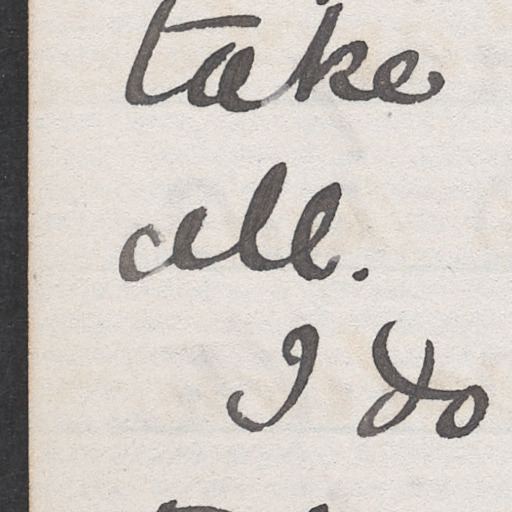 take
all.
I do